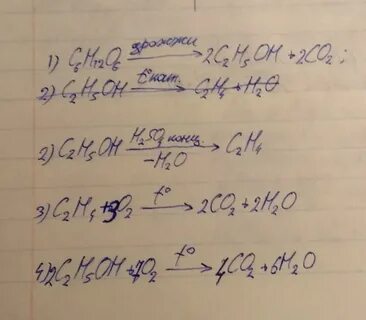 1) C₆H₁₂O₆ —дрожжи→ 2C₂H₅OH + 2CO₂;
2) C₂H₅OH —t°кат.→ C₂H₄ + H₂O
2) C₂H₅OH —H₂SO₄ конц., −H₂O→ C₂H₄
3) C₂H₄ + 3O₂ —t°→ 2CO₂ + 2H₂O
4) 2C₂H₅OH + 7O₂ —t°→ 4CO₂ + 6H₂O